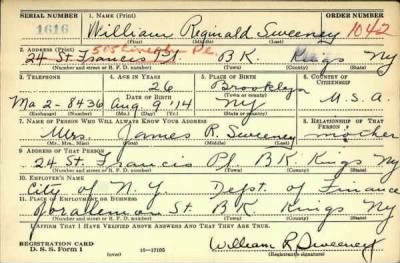 SERIAL NUMBER 1. NAME (Print) ORDER NUMBER
1616 William Reginald Sweeney 1042
(First) (Middle) (Last)
2. ADDRESS (Print) 505 Lincoln Pl.
24 St. Francis Pl. B K. Kings Ny
(Number and street or R. F. D. number) (Town) (County) (State)
3. TELEPHONE 4. AGE IN YEARS 5. PLACE OF BIRTH 6. COUNTRY OF CITIZENSHIP
26 Brooklyn
DATE OF BIRTH (Town or county)
Ma 2-8436 Aug 9 '14 Ny U.S.A.
(Exchange) (No.) (Mo.) (Day) (Yr.) (State or country)
7. NAME OF PERSON WHO WILL ALWAYS KNOW YOUR ADDRESS 8. RELATIONSHIP OF THAT PERSON
Mrs. James R. Sweeney mother
(Mr., Mrs., Miss) (First) (Middle) (Last)
9. ADDRESS OF THAT PERSON
24 St. Francis Pl B K. Kings Ny
(Number and street or R. F. D. number) (Town) (County) (State)
10. EMPLOYER'S NAME
City of N. Y. Dept. of Finance
11. PLACE OF EMPLOYMENT OR BUSINESS
Joralemon St. B K Kings Ny
(Number and street or R. F. D. number) (Town) (County) (State)
I AFFIRM THAT I HAVE VERIFIED ABOVE ANSWERS AND THAT THEY ARE TRUE.
REGISTRATION CARD
D. S. S. Form 1 (over) 16—17105 William R Sweeney
(Registrant's signature)